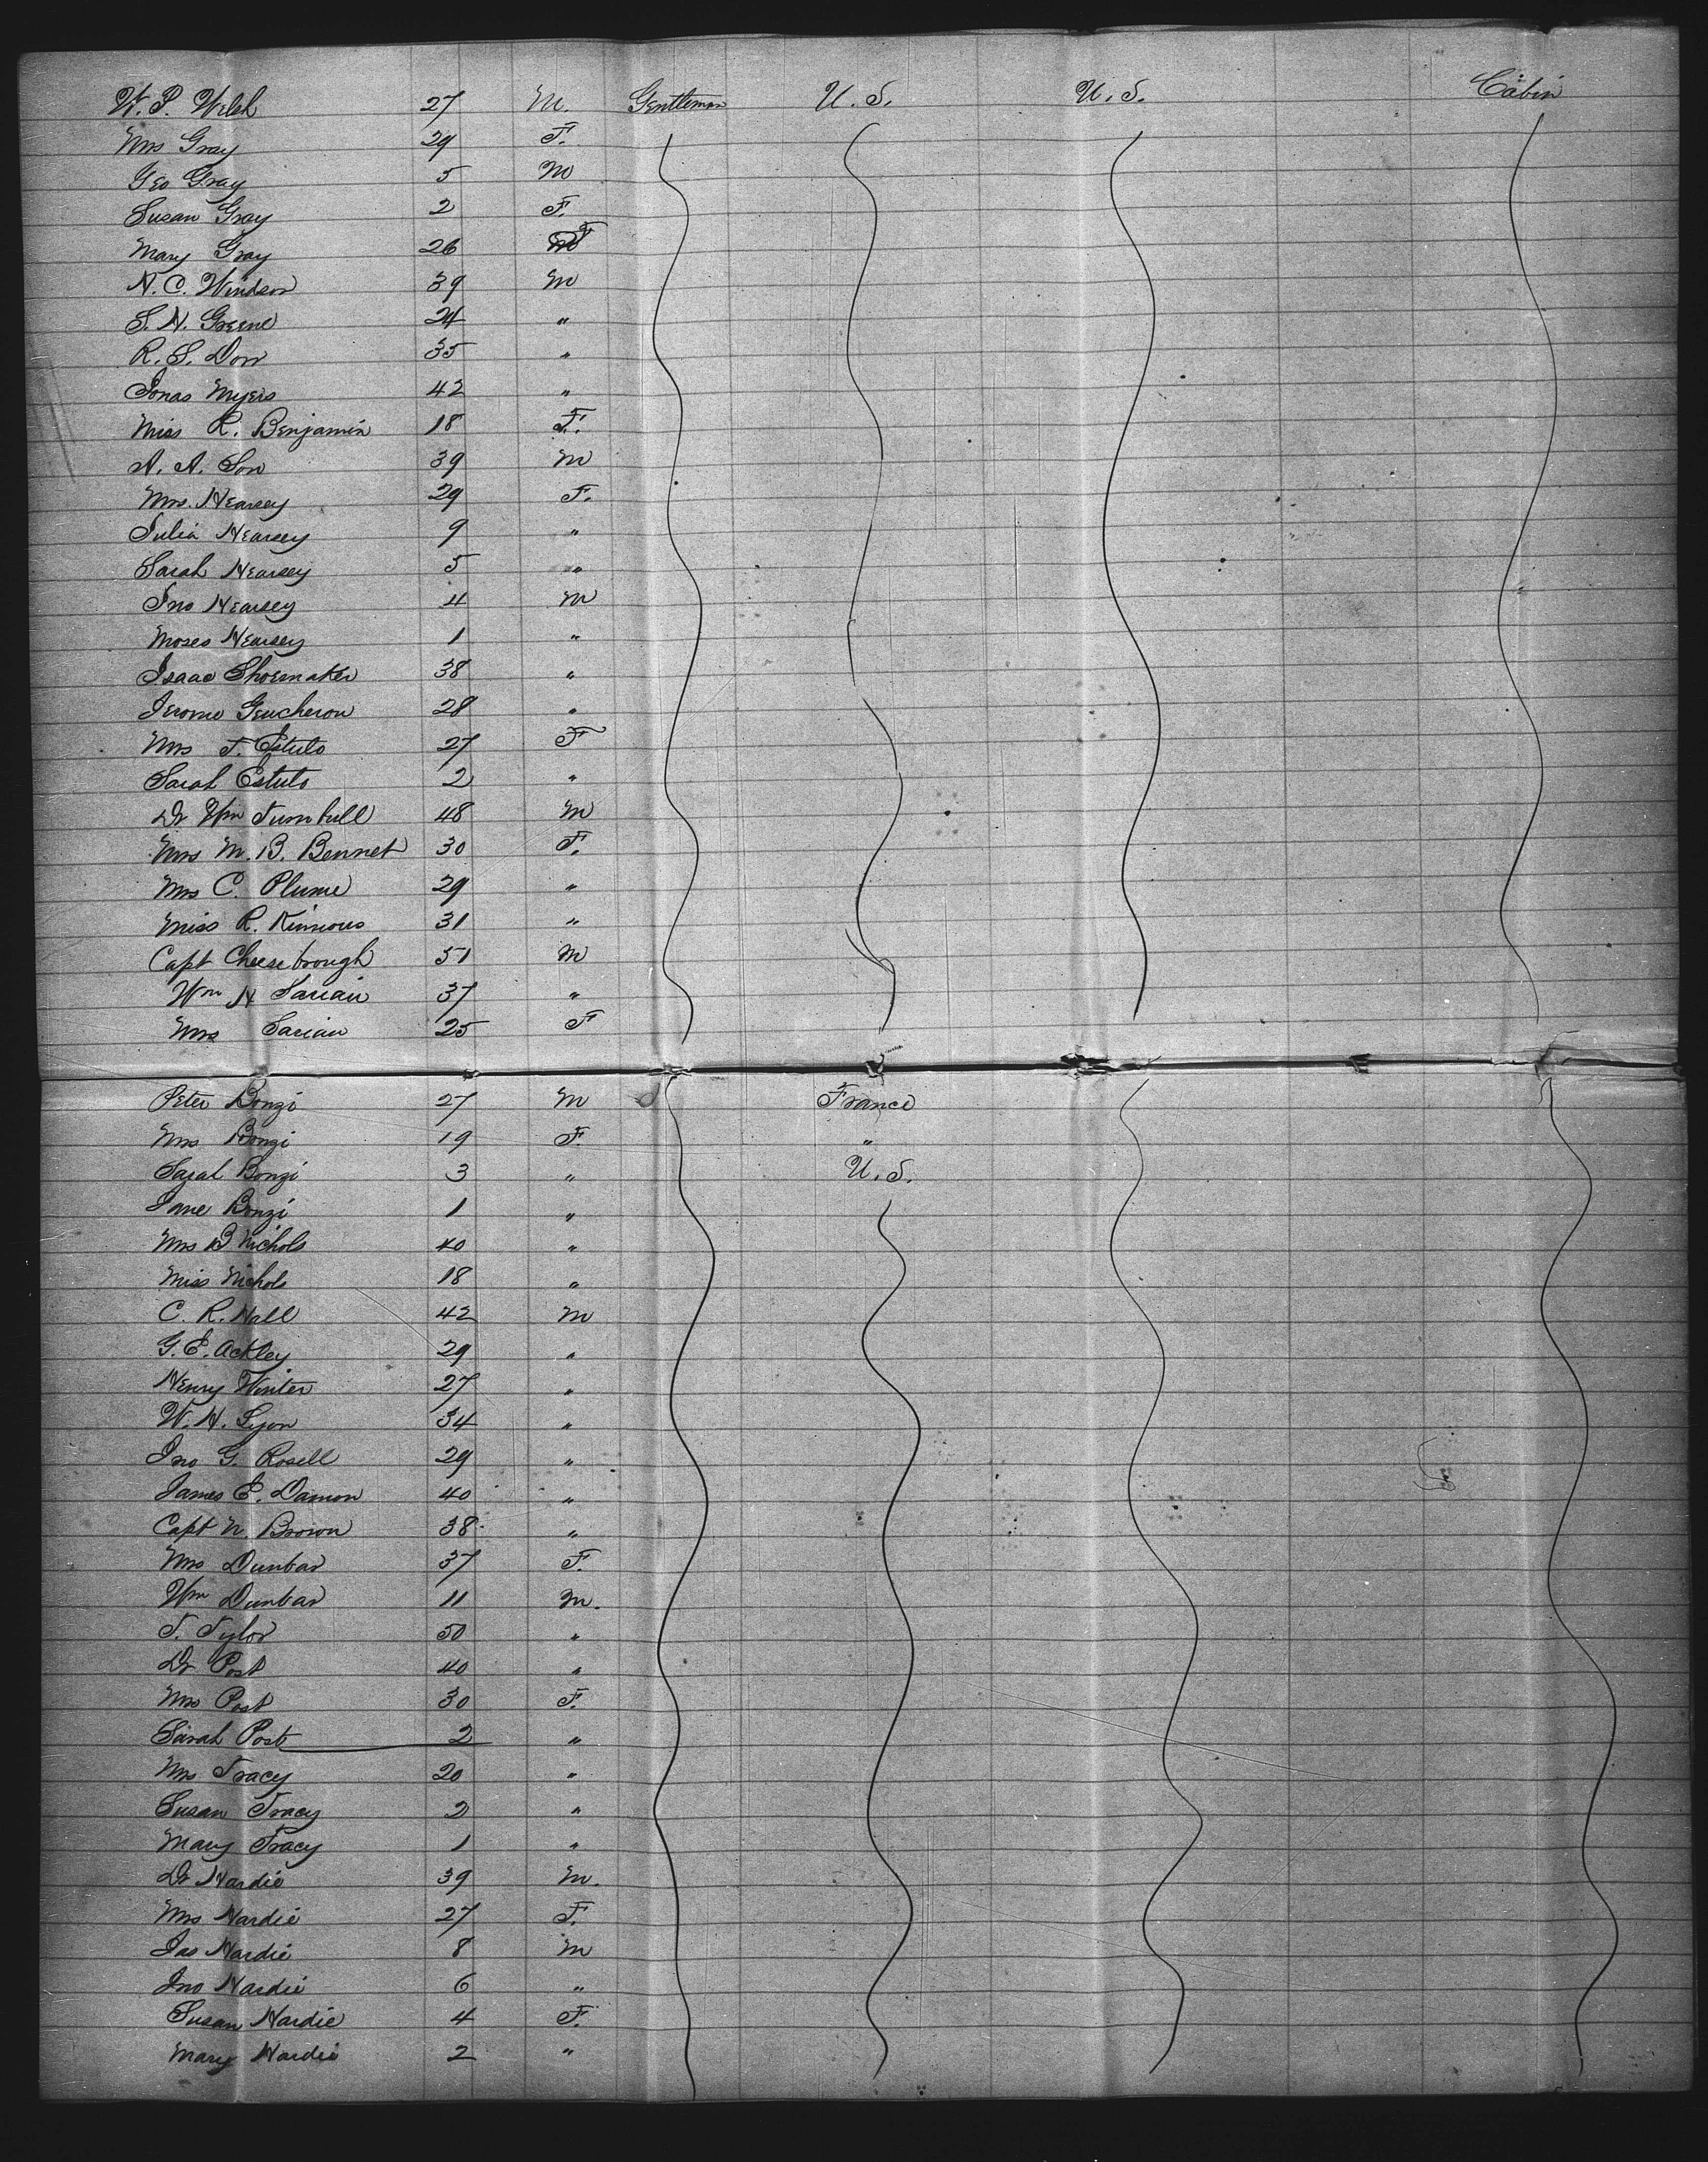 W. P. Welsh 27 M. Gentleman U. S. U. S. Cabin
Mrs Gray 29 F.
Geo Gray 5 M
Susan Gray 2 F.
Mary Gray 26 F
N. C. Windsor 39 M
S. H. Greene 24 "
R. S. Dow 35 "
Jonas Myers 42 "
Miss R. Benjamin 18 F.
A. A. Son 39 M
Mrs. Hearsey 29 F.
Julia Hearsey 9 "
Sarah Hearsey 5 "
Jno Hearsey 4 M
Moses Hearsey 1 "
Isaac Shoemaker 38 "
Jerome Geucheron 28 "
Mrs T. Estuto 27 F
Sarah Estuto 2 "
Dr Wm Turnbull 48 M
Mrs M. B. Bennet 30 F.
Mrs C. Plume 29 "
Miss R. 31 "
Capt Cheesebrough 51 M
Wm H 37 "
Mrs 25 F
Peter Bonzi 27 M France
Mrs Bonzi 19 F. "
Sarah Bonzi 3 " U. S.
Jane Bonzi 1 "
Mrs B Nichols 40 "
Miss Nichols 18 "
C. R. Hall 42 M
G. E. Ackley 29 "
Henry Winter 27 "
W. H. Lyon 34 "
Jno G. Rosell 29 "
James E. Damon 40 "
Capt N. Brown 38 "
Mrs Dunbar 37 F.
Wm Dunbar 11 M.
T. Tylor 50 "
Dr Post 40 "
Mrs Post 30 F.
Sarah Post 2 "
Mrs Tracy 20 "
Susan Tracy 2 "
Mary Tracy 1 "
Dr Hardie 39 M.
Mrs Hardie 27 F.
Jas Hardie 8 M
Jno Hardie 6 "
Susan Hardie 4 F.
Mary Hardie 2 "